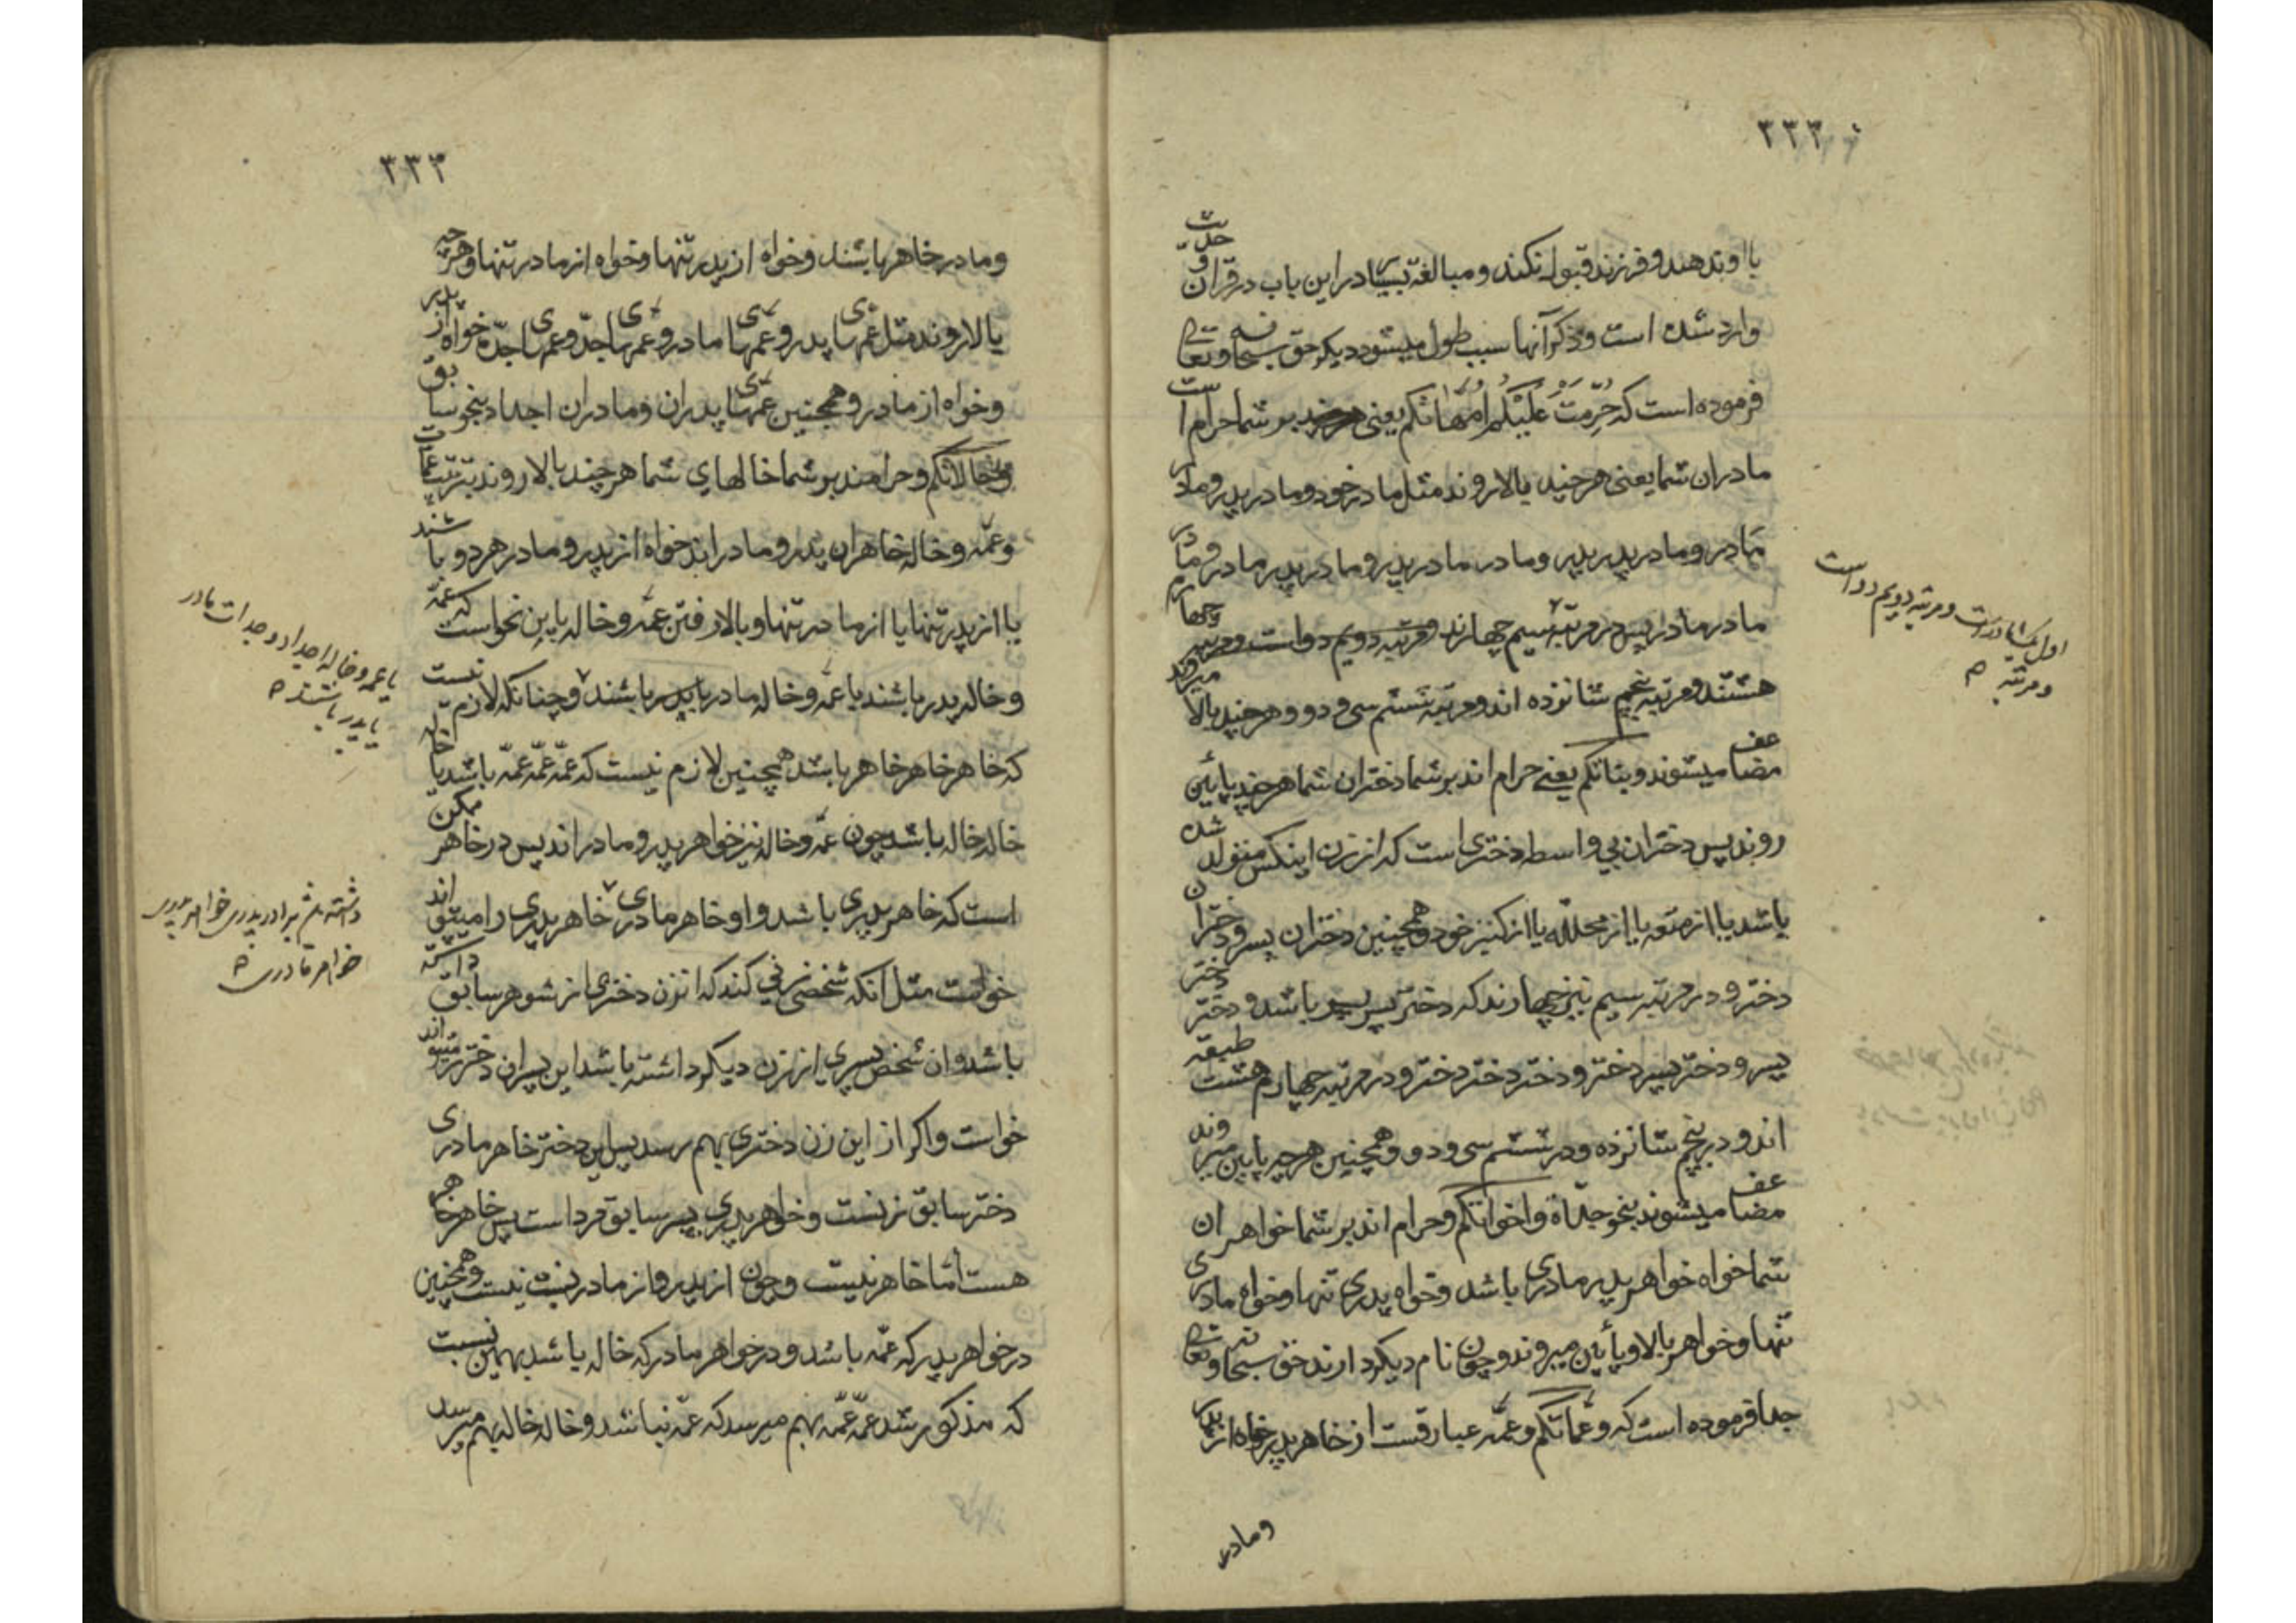 ۳۳۲
با او ندهند و فرزند قبول نکند و مبالغهٔ بسیار در این باب در قرآن و حدیث
وارد شده است و ذکر آنها سبب طول میشود دیگر حق سبحانه و تعالی
فرموده است که حُرِّمَتْ عَلَیْکُمْ اُمَّهَاتُکُم یعنی بر شما حرام است
مادران شما یعنی هرچند بالا روند مثل مادر خود و مادر پدر و مادر
مادر و مادر پدر پدر و مادر مادر پدر و مادر پدر مادر و مادر
مادر مادر پس در مرتبهٔ سیم چهارند و مرتبه دویم دو است و در مرتبه چهارم
هشتند و مرتبه پنجم شانزده اند و مرتبه ششم سی و دو و هرچند بالا میروند
مضاعف میشوند و بناتکم یعنی حرام اند بر شما دختران شما هرچند پائین
روند پس دختران بی واسطه دختری است که از زن اینکس متولد شده
باشد یا از متعه یا از محلله یا از کنیز خود و همچنین دختران پسر و دختران
دختر و در مرتبه سیم نیز چهارند که دختر پسر پسر باشد و دختر دختر
پسر و دختر پسر دختر و دختر دختر دختر و در مرتبه چهارم هشت طبقه
اند و در پنجم شانزده و در ششم سی و دو و همچنین هرچه پایین میروند
مضاعف میشوند بنحو جدّاة و اخواتکم و حرام اند بر شما خواهران
شما خواه خواهر پدر مادری باشد و خواه پدری تنها و خواه مادری
تنها و خواهر بالا و پأیین میروند و چون نام دیگر دارند حق سبحانه و تعالی
جدا فرموده است که و عمّاتکم و عمّه عبارتست از خاهر پدر خواه از پدر
و مادر
اول یکمادرست و مرتبه دویم دو است
و مرتبه
۳۳۳
و مادر خاهر باشند و خواه از پدر تنها و خواه از مادر تنها و هرچه
بالا روند مثل عمّهای پدر و عمّهای مادر و عمّهای جدّ و عمّهای جدّه خواه از پدر
و خواه از مادر و همچنین عمّهای پدران و مادران اجداد بنحو سابق
و خالاتکم و حرامند بر شما خالهای شما هرچند بالا روند بترتیب عمّات
و عمّه و خاله خاهران پدر و مادر اند خواه از پدر و مادر هر دو باشند
یا از پدر تنها یا از مادر تنها و بالا رفتن عمّه و خاله باین نحو است که عمّه
و خاله پدر باشند یا عمّه و خاله مادر یا پدر باشند و چنانکه لازم نیست
که خاهر خاهر خاهر باشد همچنین لازم نیست که عمّه عمّه عمّه باشد یا خاله
خاله خاله باشد چون عمّه و خاله نیز خواهر پدر و مادر اند پس در خاهر ممکن
است که خاهر پدری باشد و او خاهر مادری خاهر پدری را میتواند
خواست مثل آنکه شخصی زنی کند که آن زن دختری از شوهر سابق داشته
باشد و آن شخص پسری از زن دیگر داشته باشد این پسر آن دختر را میتواند
خواست و اگر از این زن دختری بهم رسد پس این دختر خاهر مادری
دختر سابق زنست و خواهر پدری پسر سابق مرد است پس خاهر خاهر
هست امّا خاهر نیست و چون از پدر و از مادر نیست و همچنین
در خواهر پدر که عمّه باشد و در خواهر مادر که خاله باشد بهمین نسبت
که مذکور شد عمّه عمّه بهم میرسد که عمّه نباشد و خاله خاله بهم میرسد
یا عمه و خاله اجداد و جدات مادر
یا پدر باشند
داشته باشد برادر پدری خواهر پدری
خواهر مادری